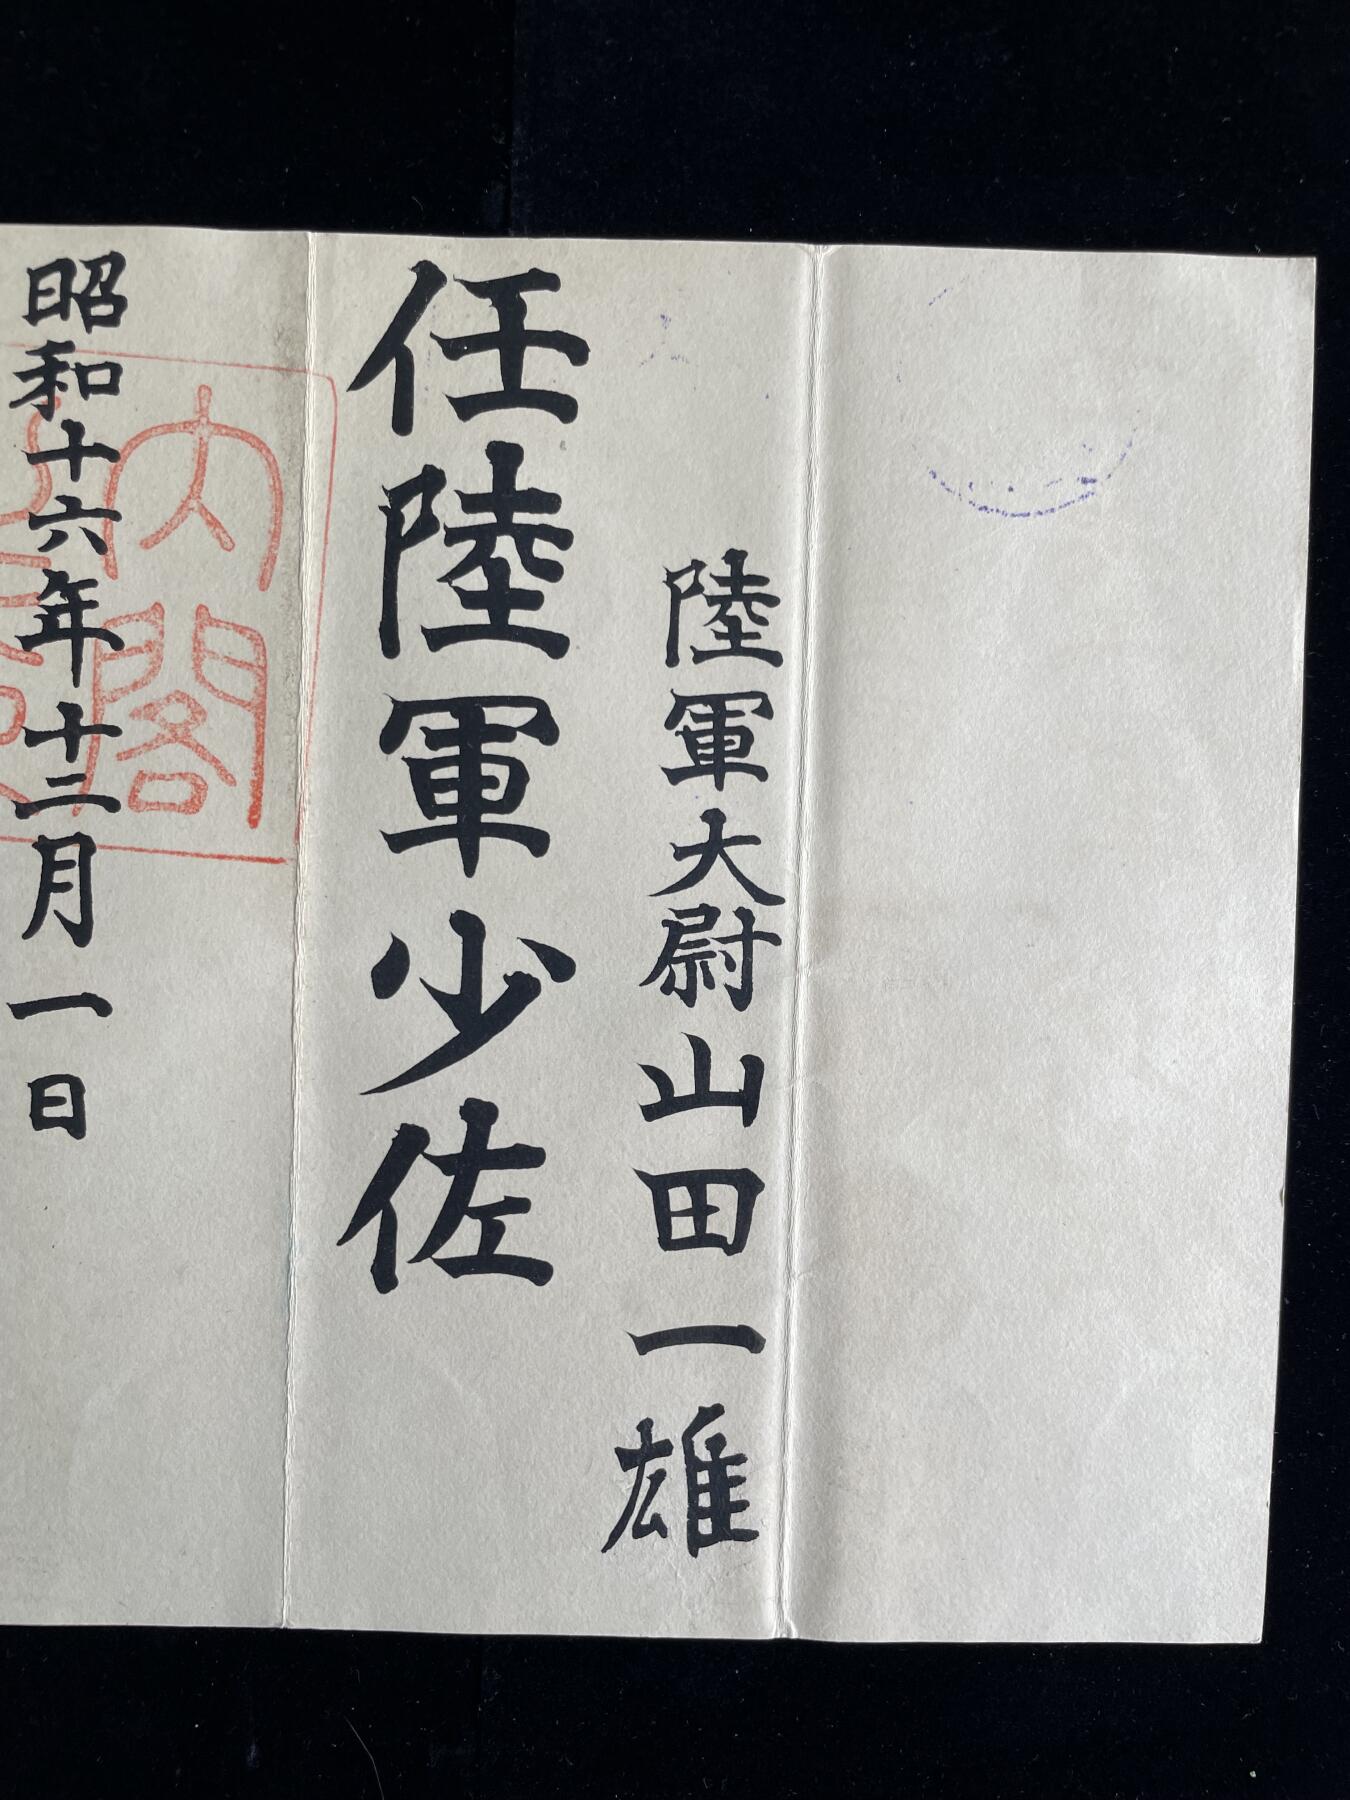 陸軍大尉山田一雄
任陸軍少佐
昭和十六年十二月一日
内閣